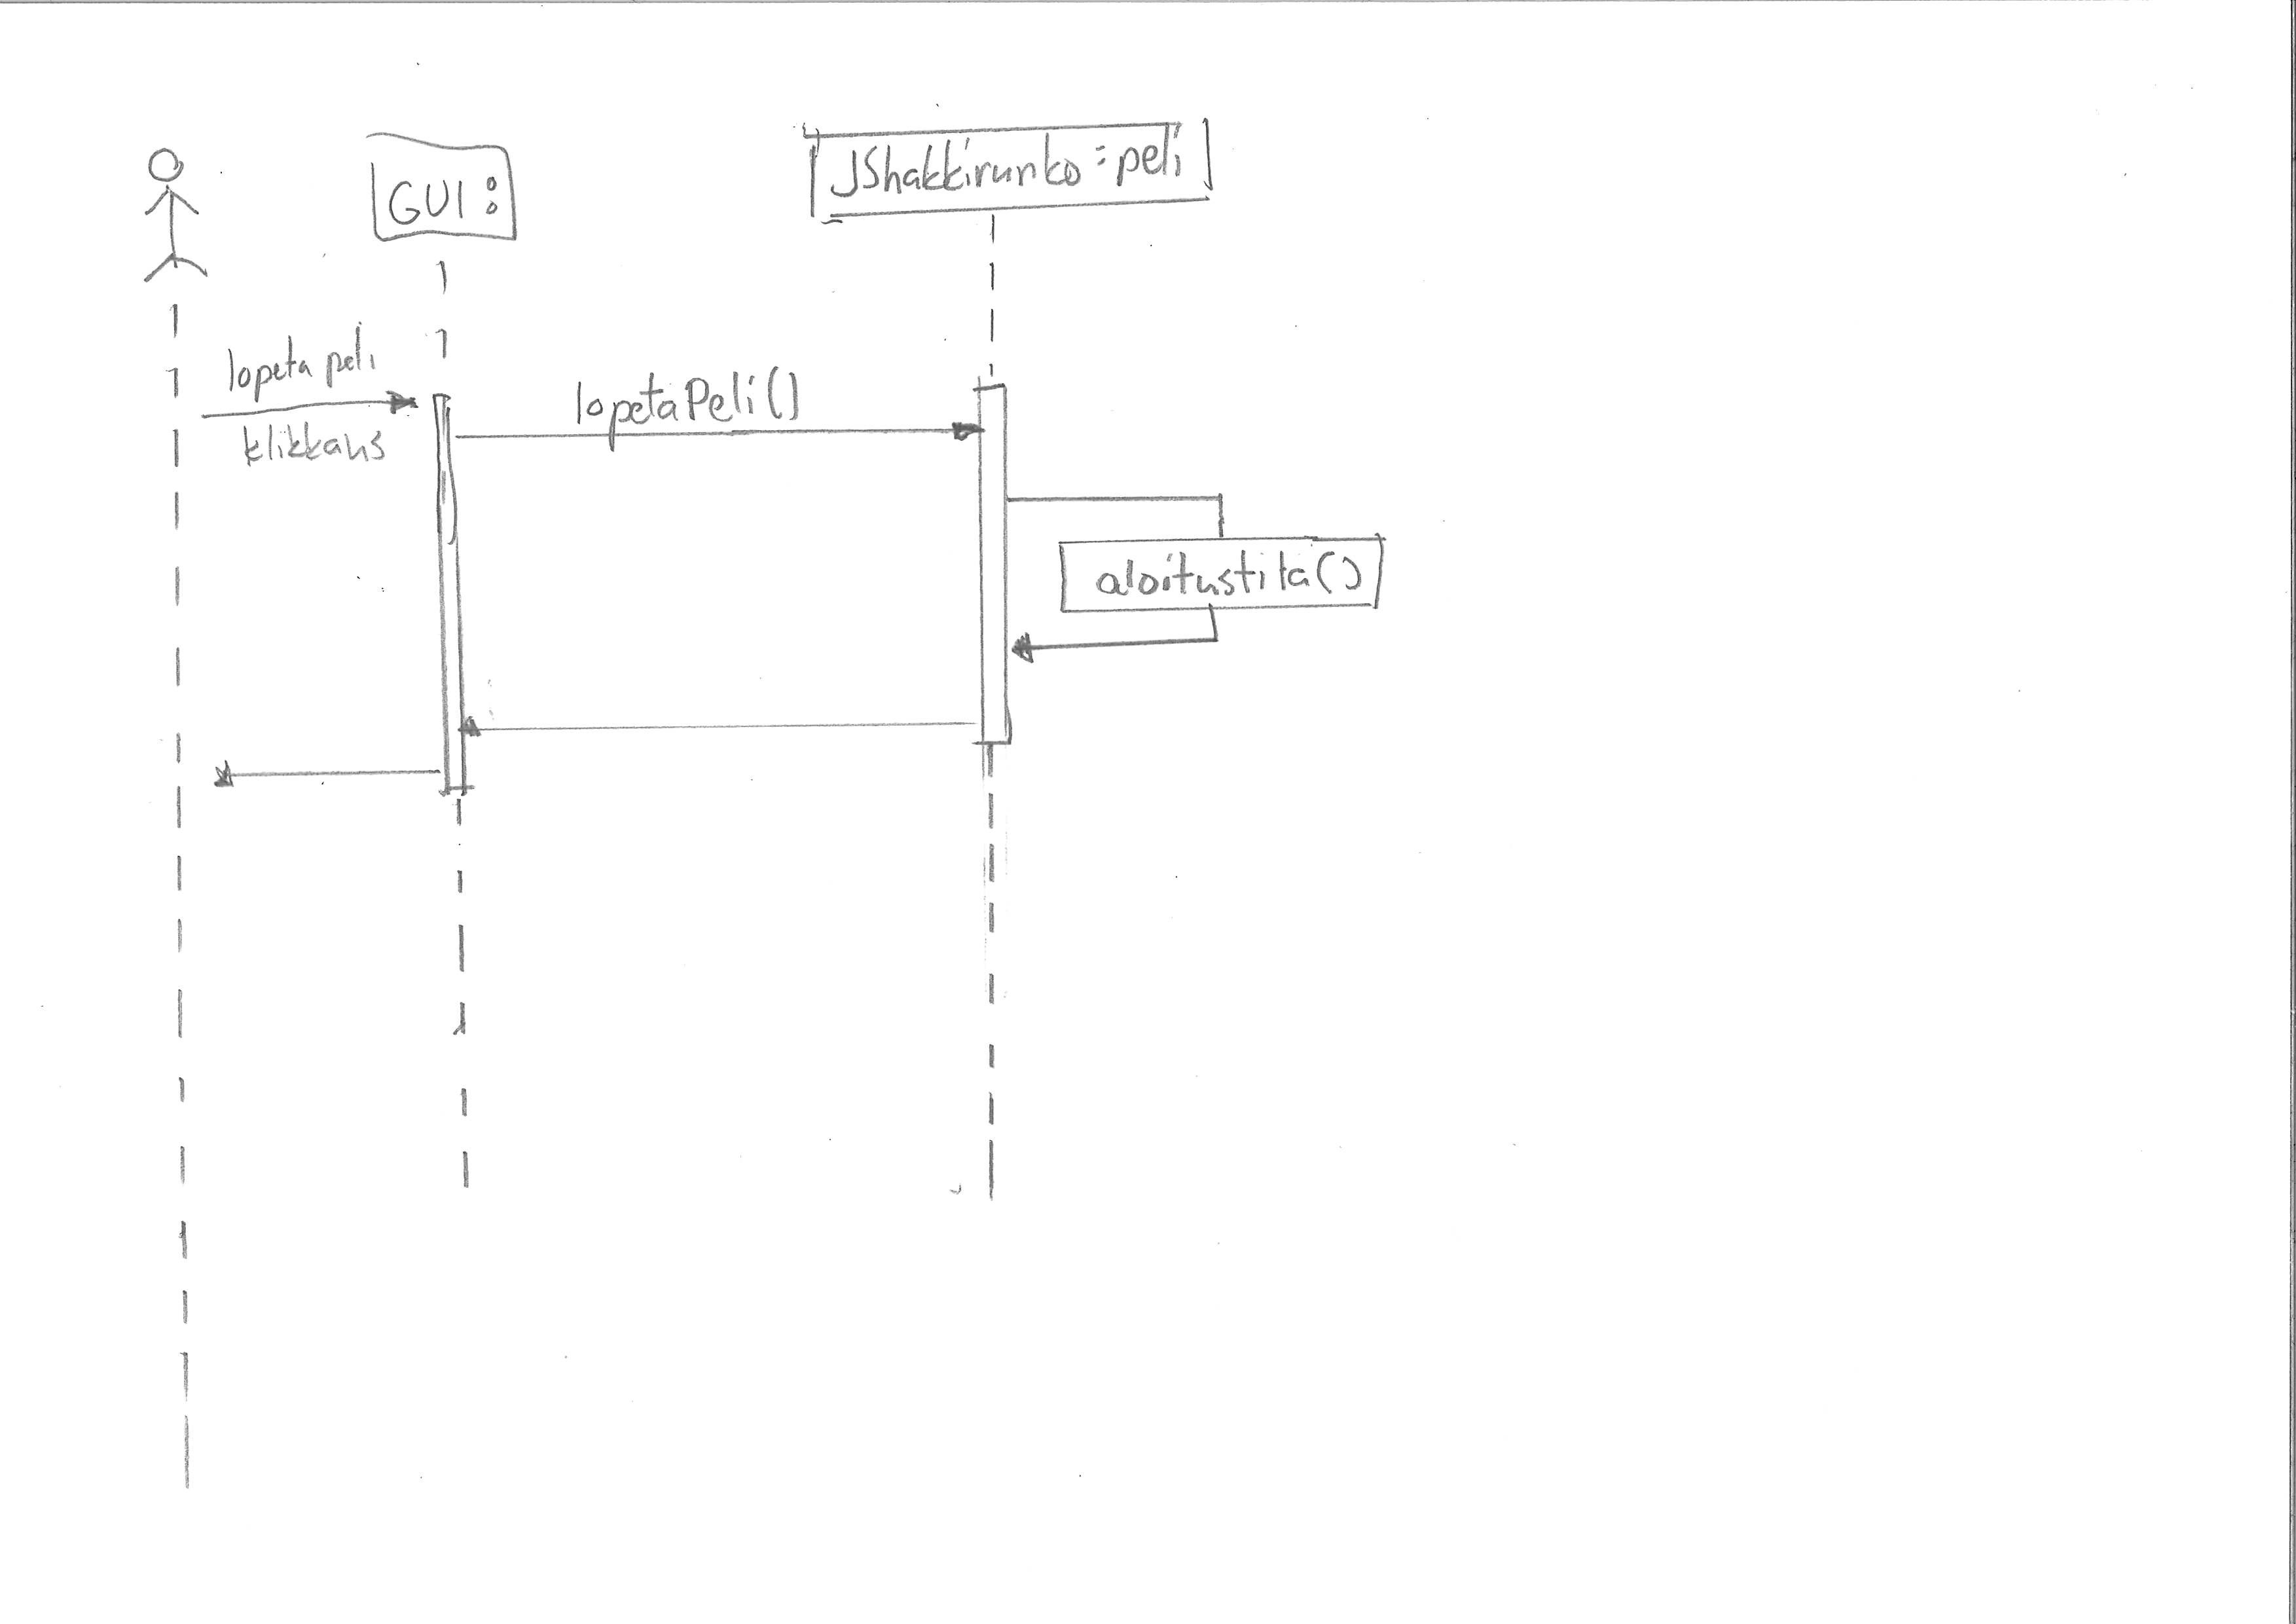 GUI:
JShakkirunko:peli
lopeta peli
klikkaus
lopetaPeli()
aloitustila()